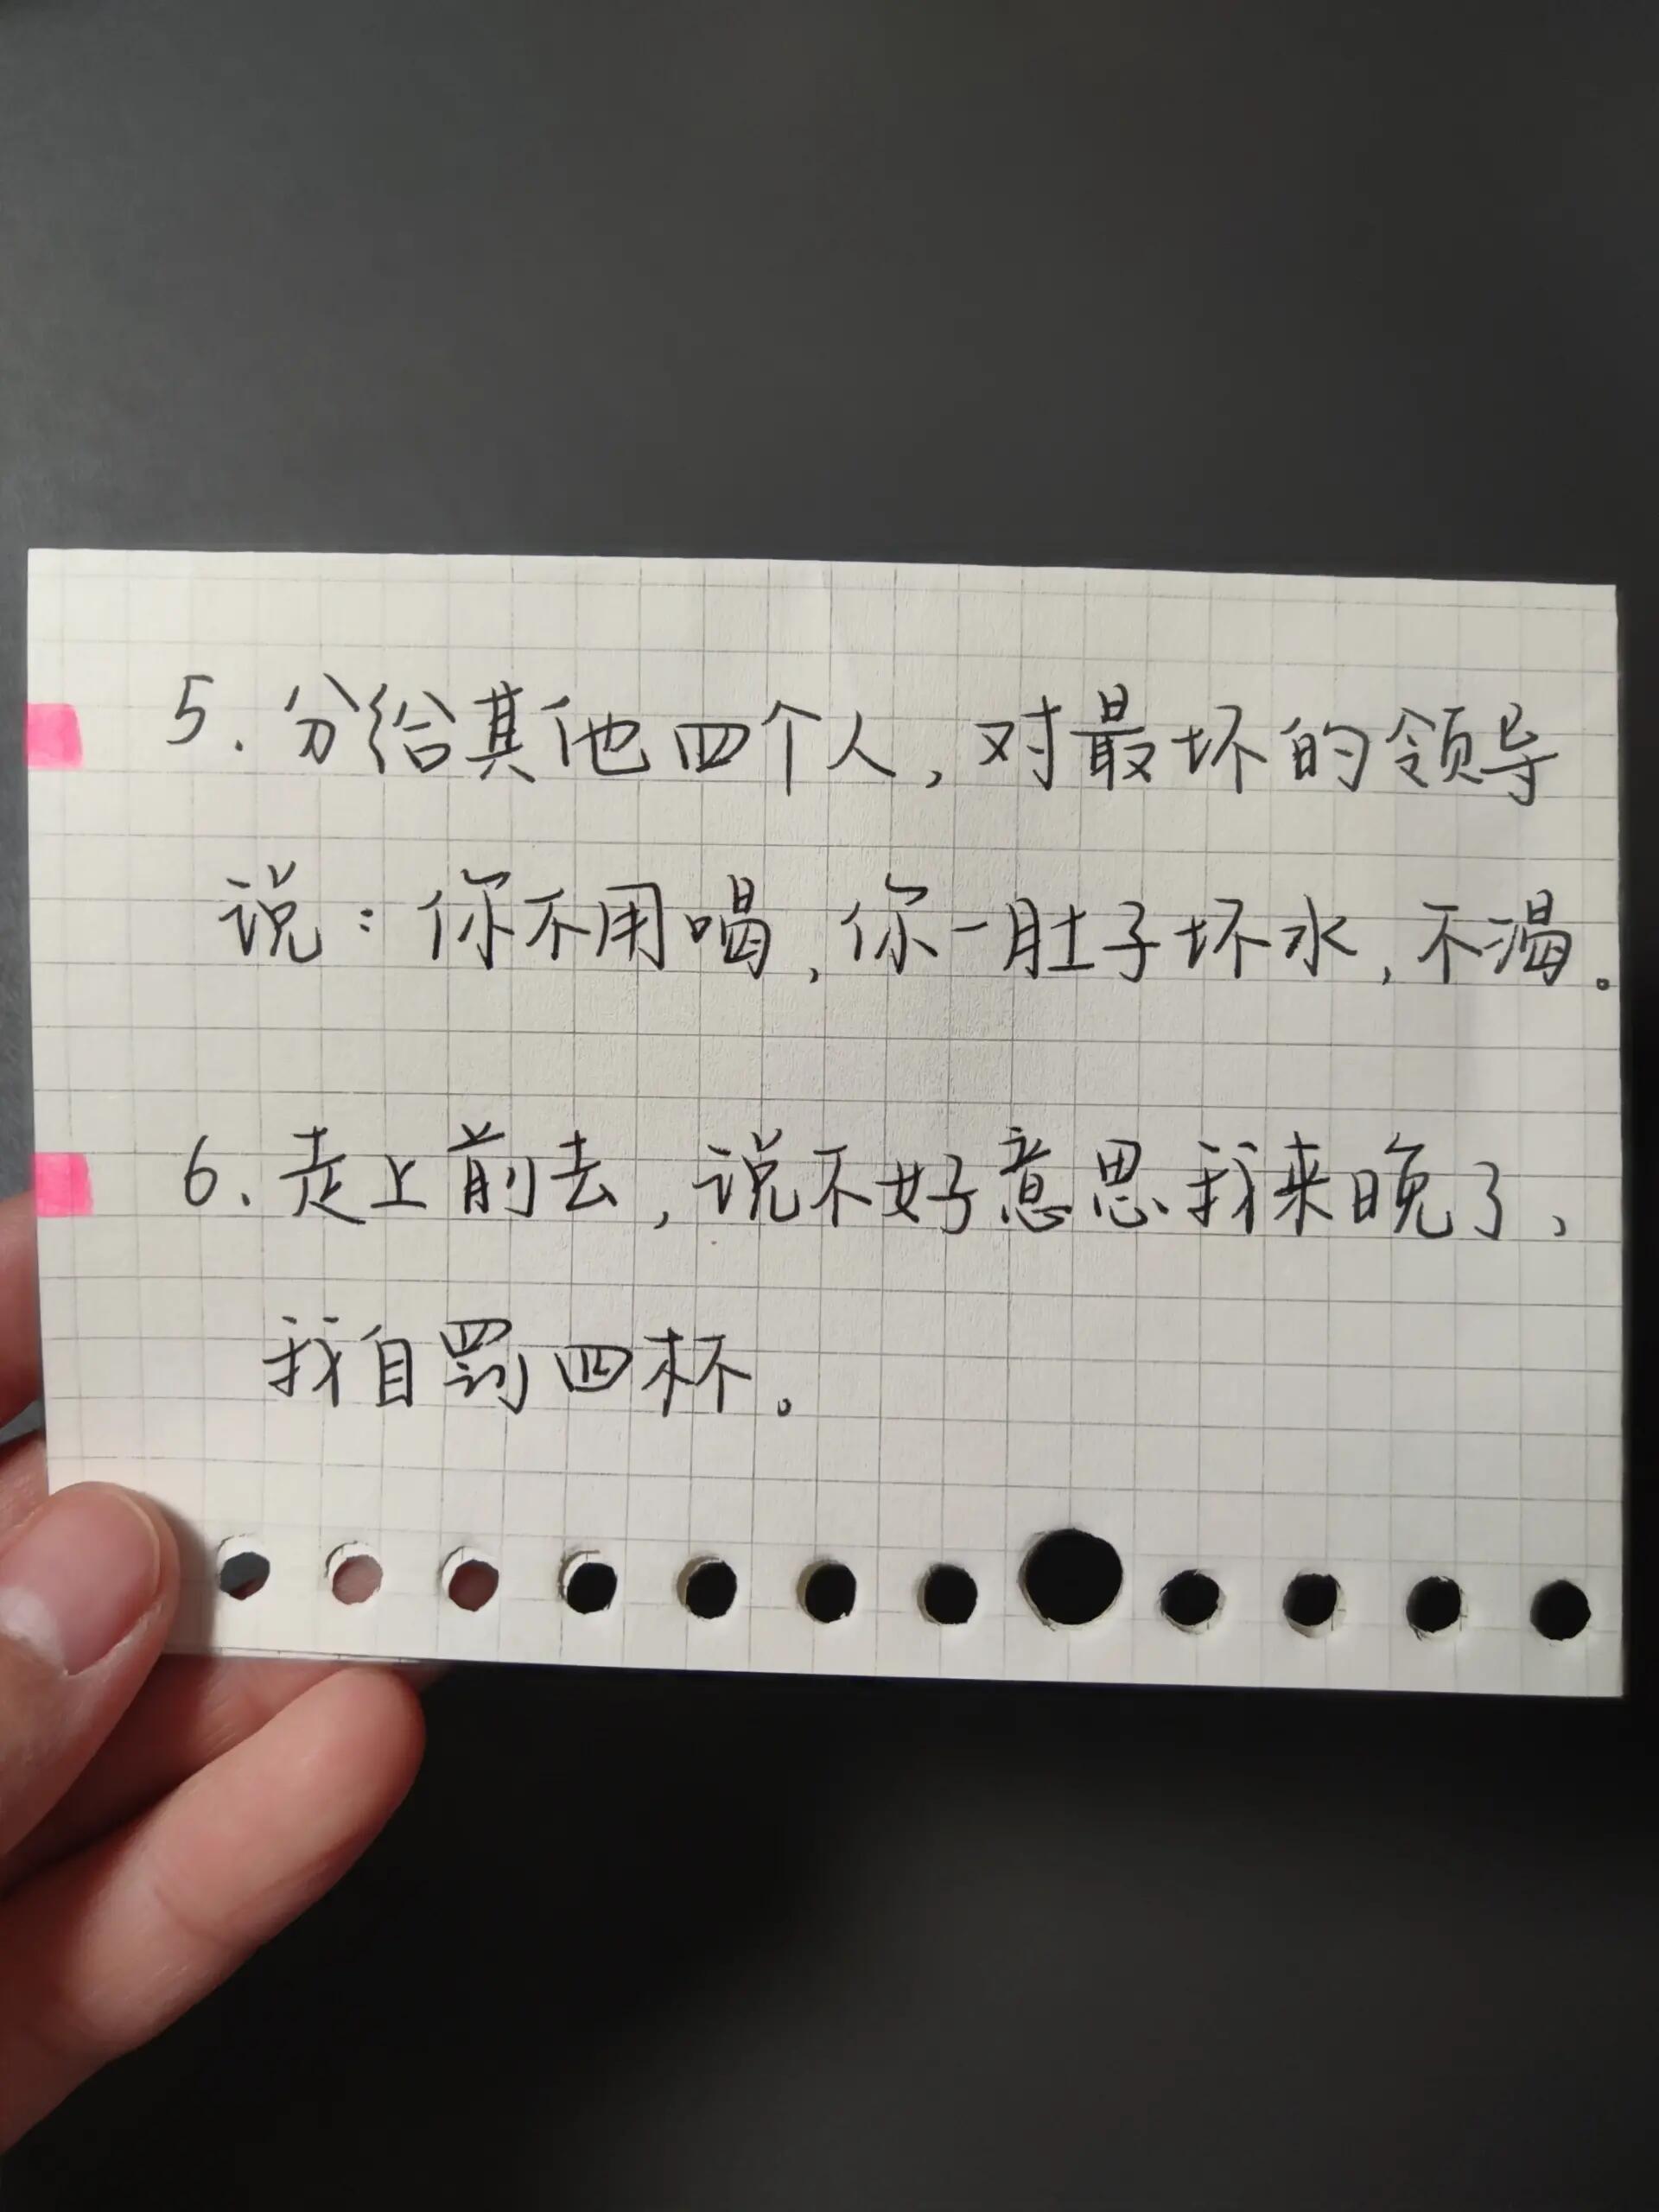 5. 分给其他四个人, 对最坏的领导
说: 你不用喝, 你一肚子坏水, 不渴。
6. 走上前去, 说不好意思我来晚了,
我自罚四杯。